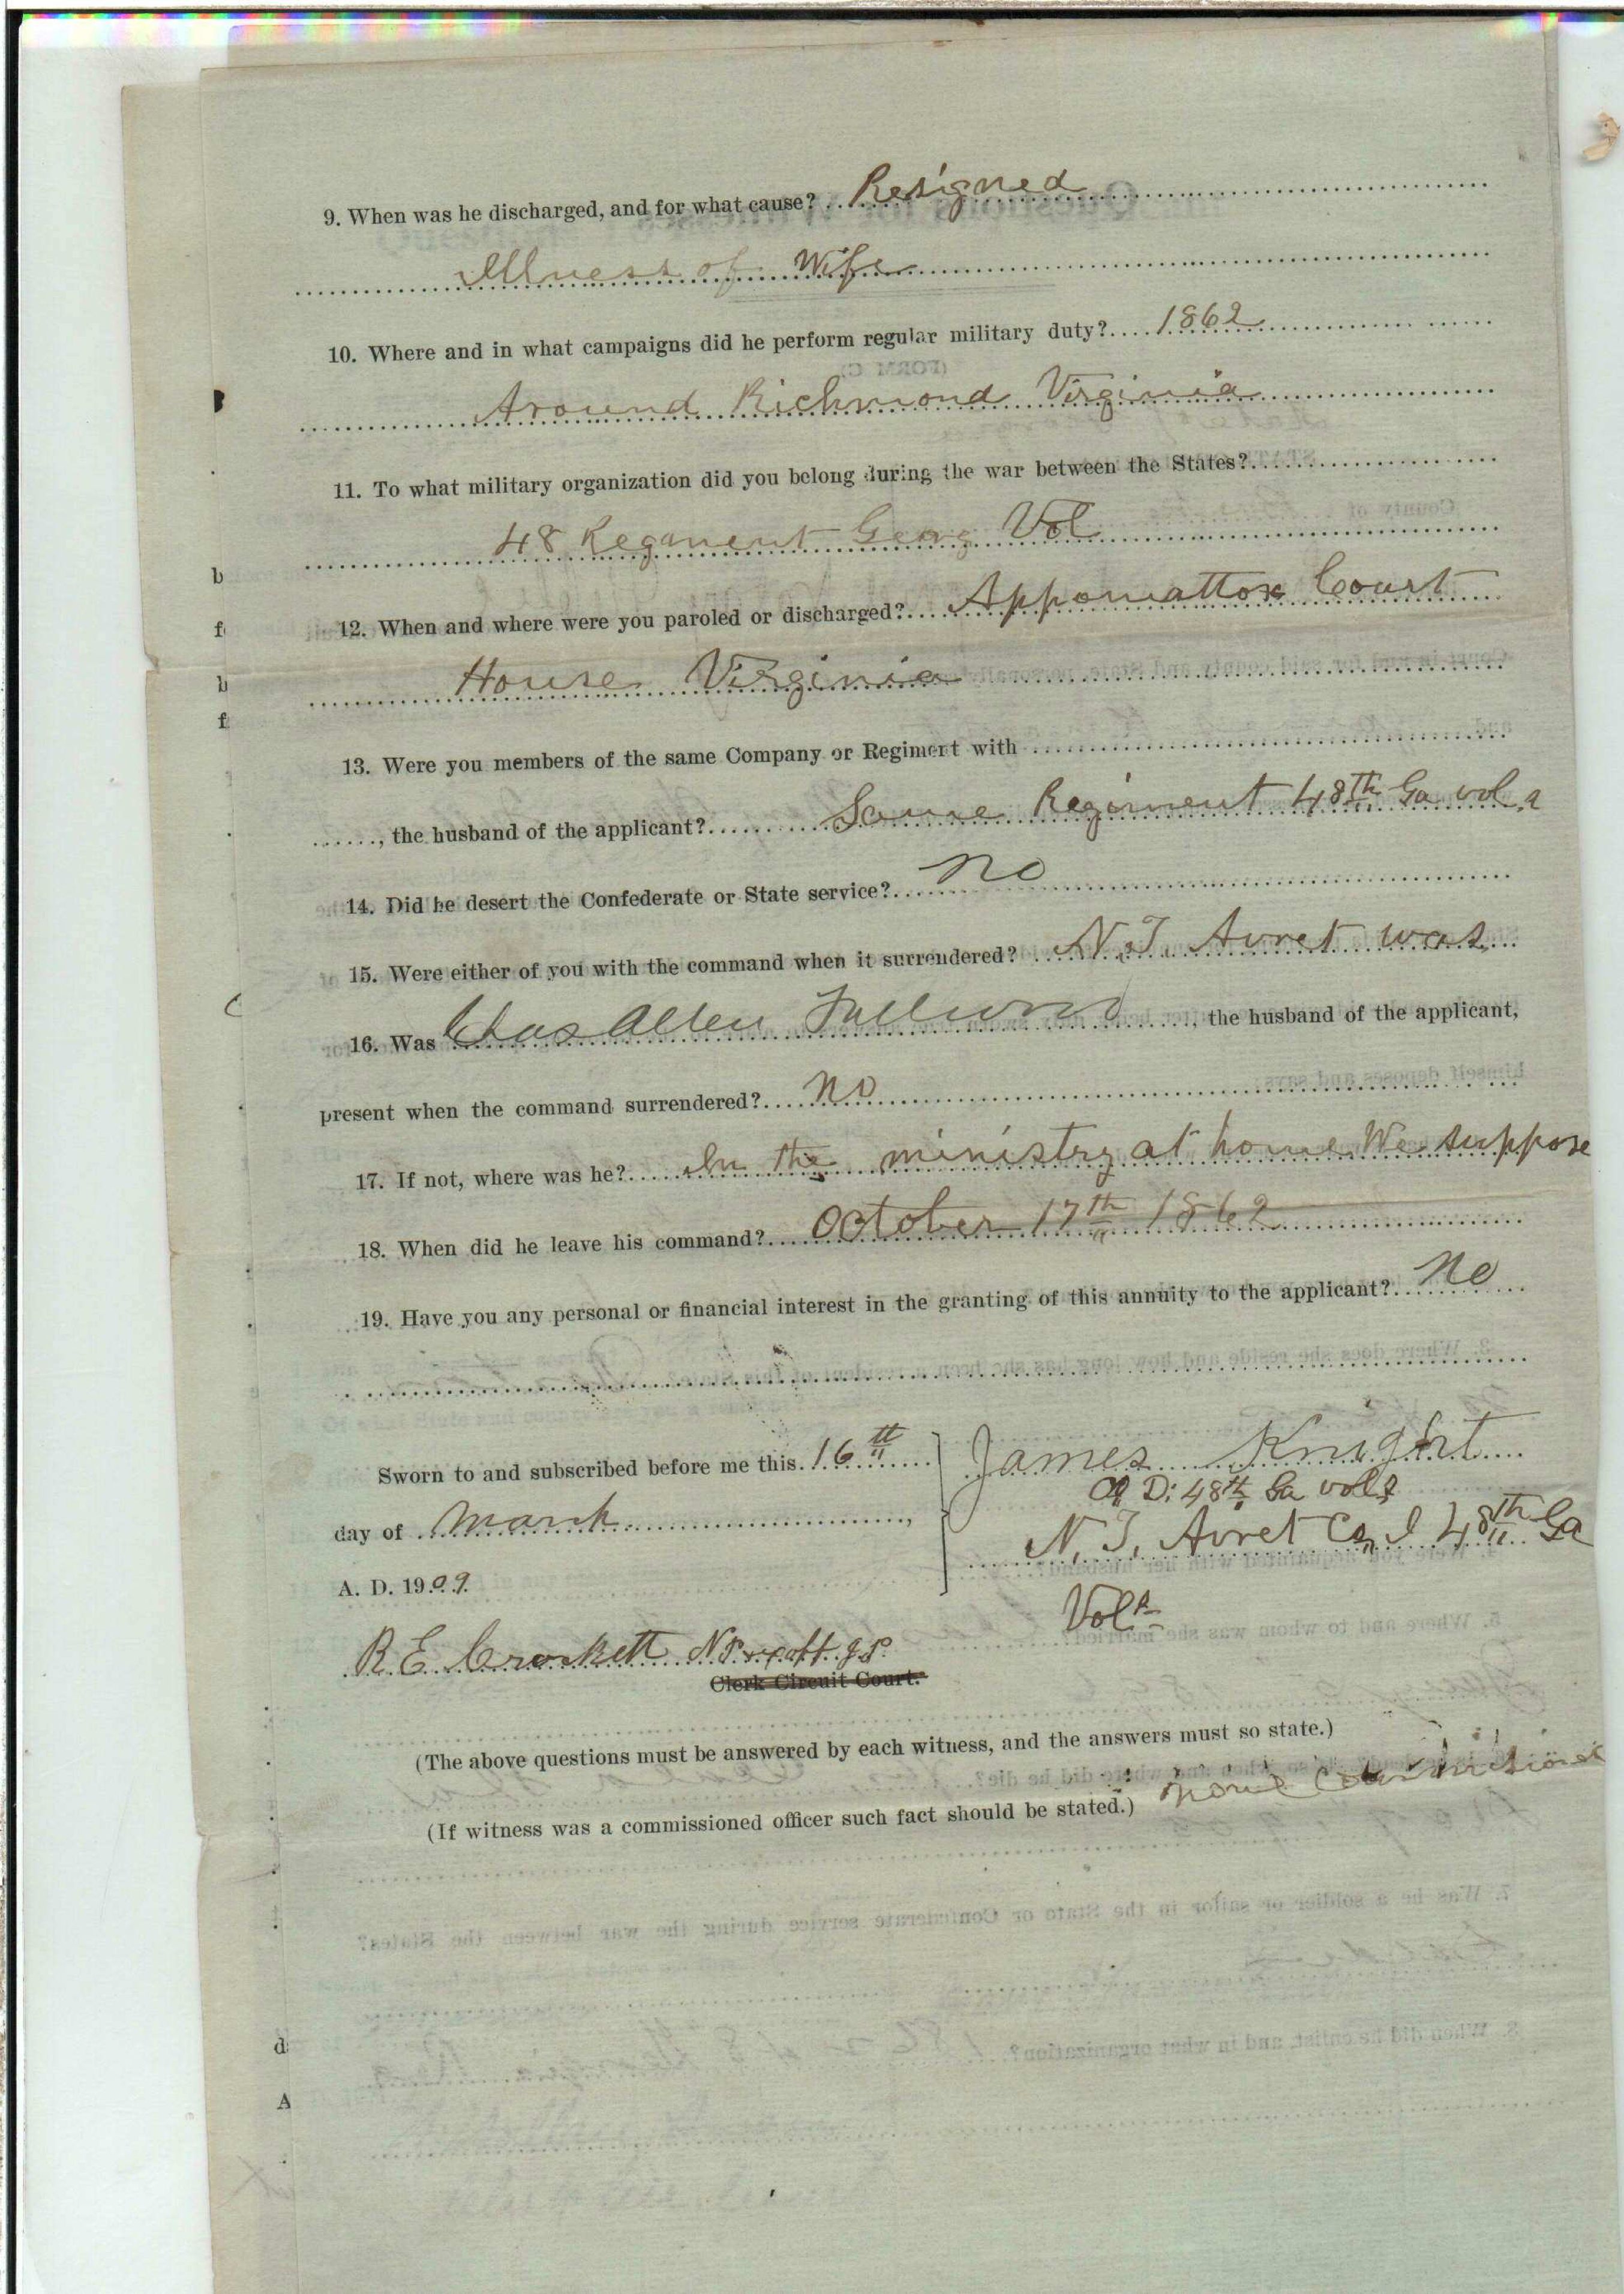 9. When was he discharged, and for what cause? Resigned
illness of Wife
10. Where and in what campaigns did he perform regular military duty? 1862
Around Richmond Virginia
11. To what military organization did you belong during the war between the States?
48 Regament Georg Vol
12. When and where were you paroled or discharged? Appomattox Court
House Virginia
13. Were you members of the same Company or Regiment with
, the husband of the applicant? Same Regiment 48th Ga vol
14. Did he desert the Confederate or State service? No
15. Were either of you with the command when it surrendered? N.J. Avret was
16. Was Chas Allen Fullwood, the husband of the applicant,
present when the command surrendered? No
17. If not, where was he? In the ministry at home We suppose
18. When did he leave his command? October 17th 1862
19. Have you any personal or financial interest in the granting of this annuity to the applicant? No
Sworn to and subscribed before me this 16th
James Knight
Co D: 48th Ga vols
day of March,
N, J, Avret Co, I 48th Ga
Vols
A. D. 1909.
R. E. Crockett N.P. J.P.
Clerk Circuit Court.
(The above questions must be answered by each witness, and the answers must so state.)
(If witness was a commissioned officer such fact should be stated.) None Commissioned
b
f
h
f
d
A